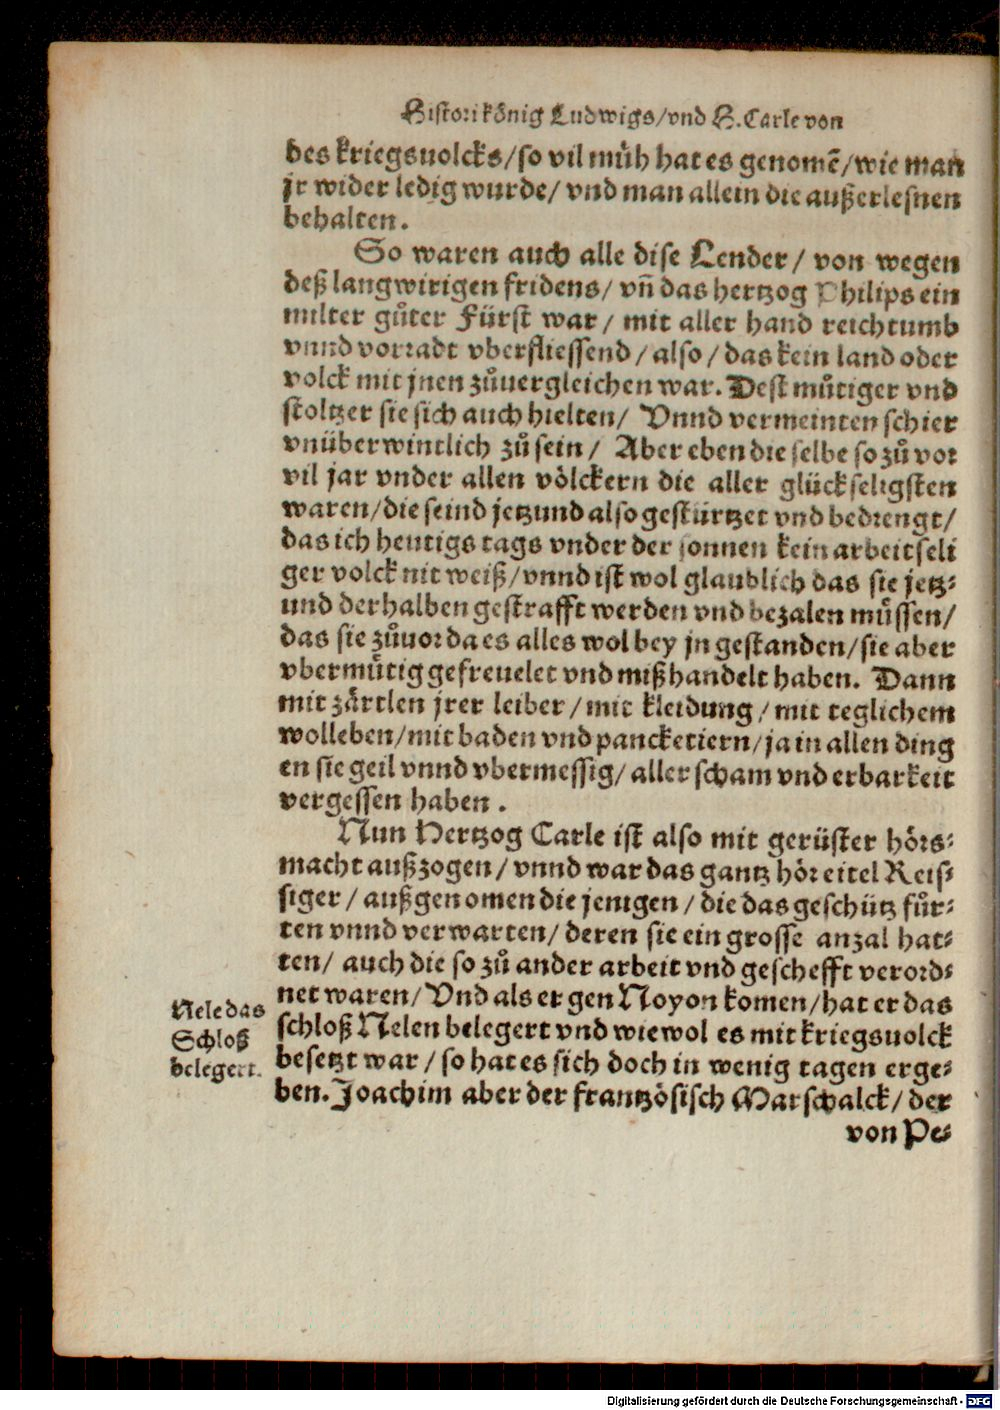 Histori könig Ludwigs/vnd H. Carle von
des kriegsuolcks/so vil müh hat es genomẽ/wie man
jr wider ledig wurde/ vnd man allein die außerlesnen
behalten.
So waren auch alle dise Lender/ von wegen
deß langwirigen fridens/ vñ das hertzog Philips ein
milter gůter Fürst war/ mit aller hand reichtumb
vnnd vorradt vberfliessend/also/das kein land oder
volck mit jnen zůuergleichen war. Dest můtiger vnd
stoltzer sie sich auch hielten/ Vnnd vermeinten schier
vnüberwintlich zů sein/ Aber eben die selbe so zů vor
vil jar vnder allen völckern die aller glückseligsten
waren/die seind jetzund also gestürtzet vnd bedrengt/
das ich heutigs tags vnder der sonnen kein arbeitseli
ger volck nit weiß/vnnd ist wol glaublich das sie jetz-
und derhalben gestrafft werden vnd bezalen müssen/
das sie zůuor da es alles wol bey jn gestanden/sie aber
vbermůtig gefreuelet vnd mißhandelt haben. Dann
mit zärtlen jrer leiber/mit kleidung/mit teglichem
wolleben/mit baden vnd pancketiern/ja in allen ding
en sie geil vnnd vbermessig/ aller scham vnd erbarkeit
vergessen haben.
Nun Hertzog Carle ist also mit gerüster hörs-
macht außzogen/ vnnd war das gantz hör eitel Reis-
siger/ außgenomen die jenigen/ die das geschütz für-
ten vnnd verwarten/ deren sie ein grosse anzal hat-
ten/ auch die so zů ander arbeit vnd geschefft verord-
net waren/ Vnd als er gen Noyon komen/hat er das
schloß Nelen belegert vnd wiewol es mit kriegsuolck
besetzt war/ so hat es sich doch in wenig tagen erge-
ben. Joachim aber der frantzösisch Marschalck/ der
von Pe-
Nele das
Schloß
belegert.
Digitalisierung gefördert durch die Deutsche Forschungsgemeinschaft - DFG